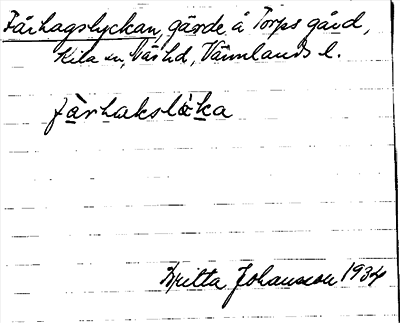 Fårhagslyckan, gärde å Torps gård,
Kila sn, Näs hd, Värmlands l.
fàrhakslåka
Britta Johansson 1934